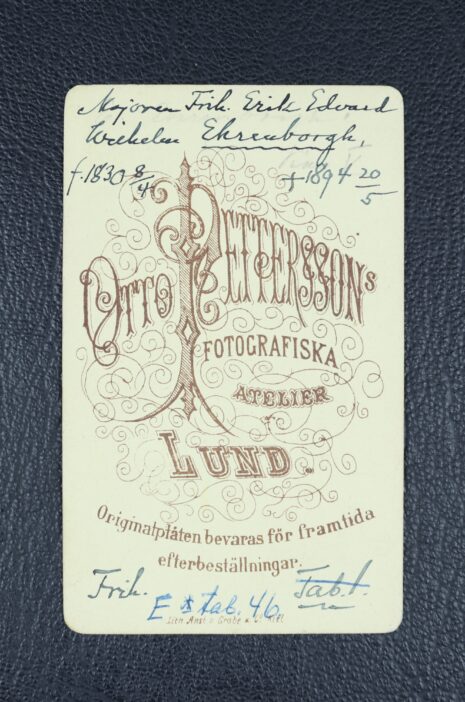 Majoren Frih. Erik Edvard
Wilhelm Ehrenborgh,
f. 1830 8/4 † 1894 20/5
OTTO PETTERSSONS
FOTOGRAFISKA
ATELIER
LUND.
Originalplåten bevaras för framtida
efterbeställningar.
Frih. Tab. 1.
E * tab. 46.
Lith. Anst. v. Grabe